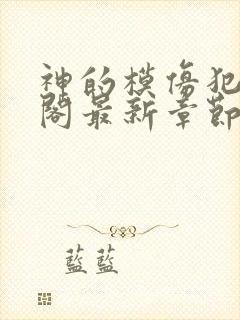 神的模傷犯
閣最新章節
藍藍